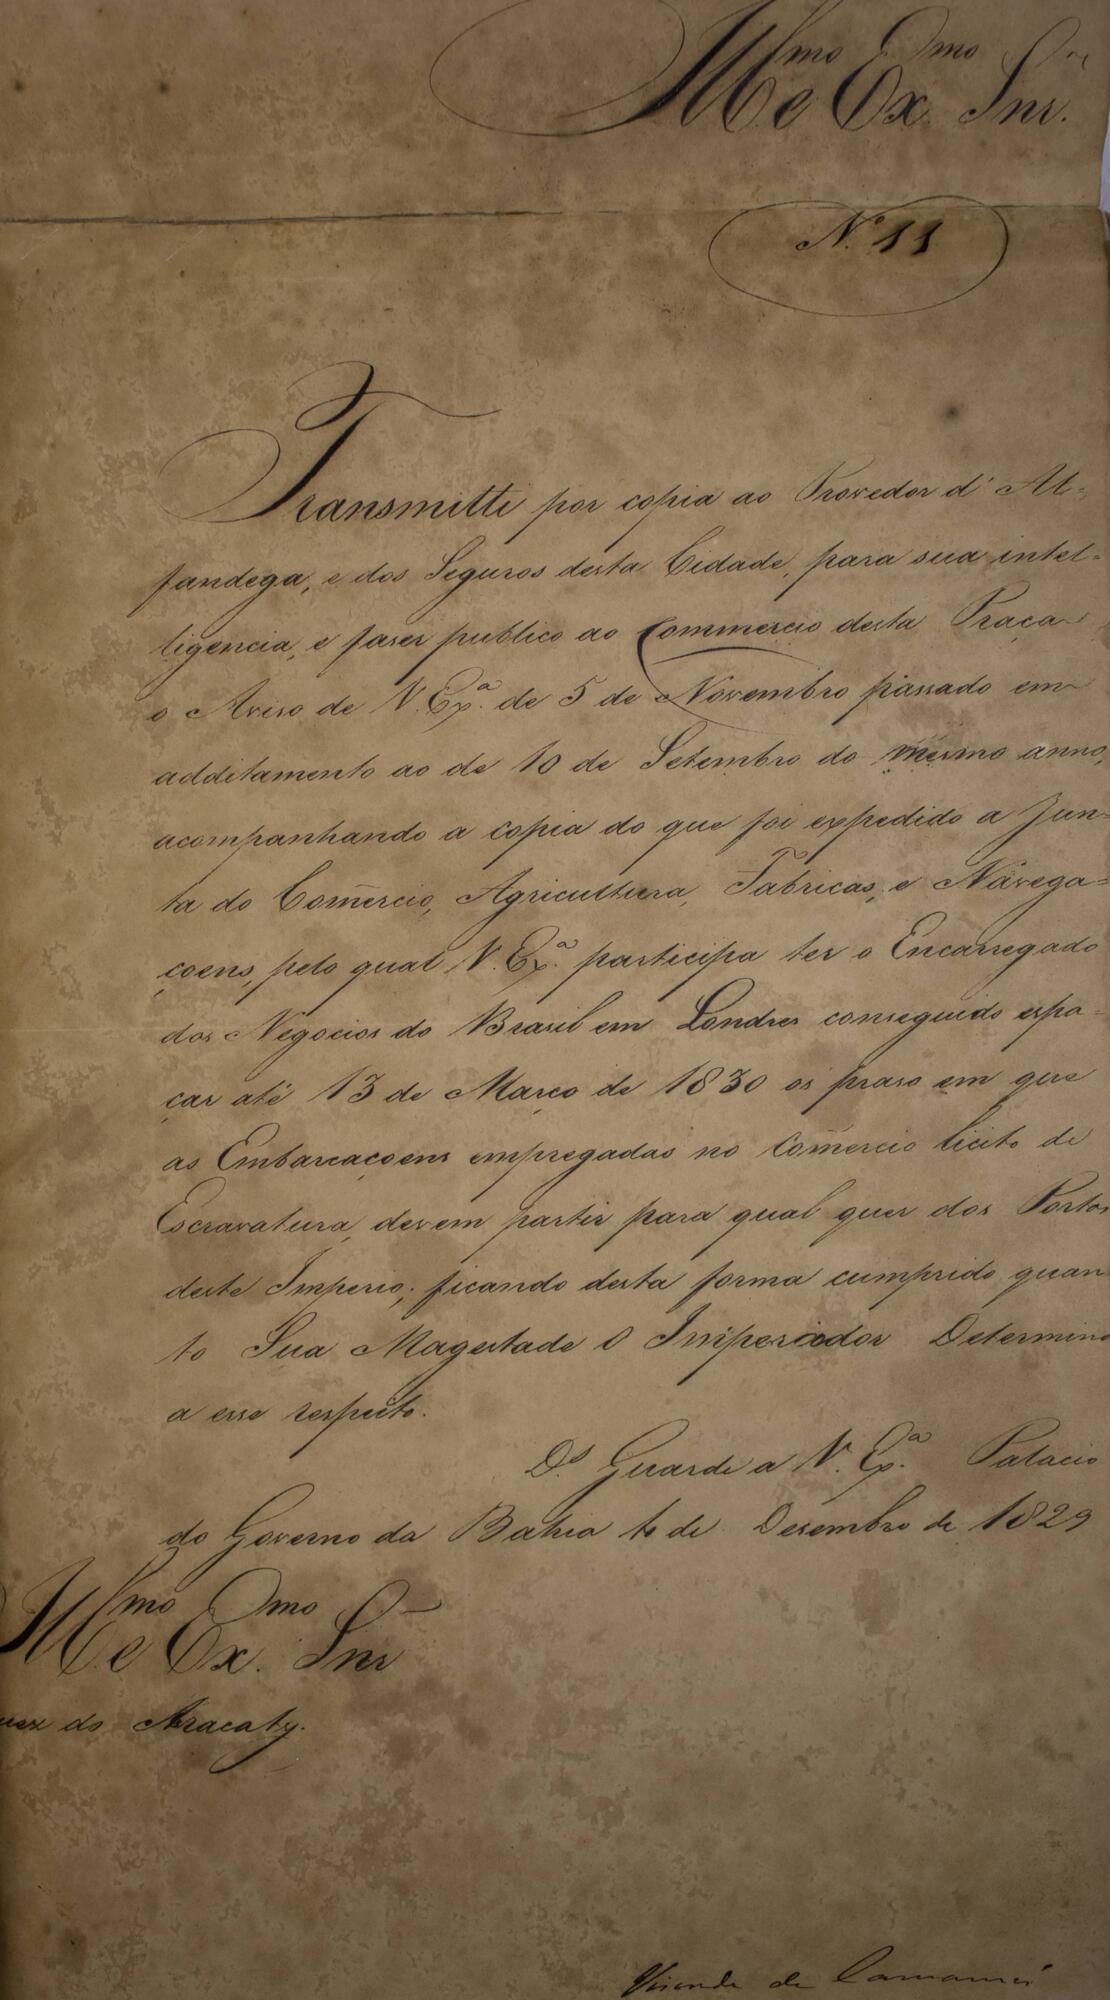 Illmo e Exmo Snr.
N.º 11
Transmitti por copia ao Provedor d'Al=
fandega, e dos Seguros desta Cidade, para sua intel=
ligencia, e faser publico ao Commercio desta Praça
o Aviso de V. Exª. de 5 de Novembro passado em
additamento ao de 10 de Setembro do mesmo anno,
acompanhando a copia do que foi expedido a Jun=
ta do Com̃ercio, Agricultura, Fabricas, e Navega=
çoens, pelo qual V. Exª. participa ter o Encarregado
dos Negocios do Brasil em Londres conseguido espa=
çar até 13 de Março de 1830 o praso em que
as Embarcaçoens empregadas no Com̃ercio licito de
Escravatura, devem partir para qual quer dos Portos
deste Imperio; ficando desta forma cumprido quan
to Sua Magestade O Imperador Determina
a esse respeito.
Ds. Guarde a V. Exª. Palacio
do Governo da Bahia de Desembro de 1829
Illmo e Exmo Snr
uez do Aracaty.
Visconde de Camamú